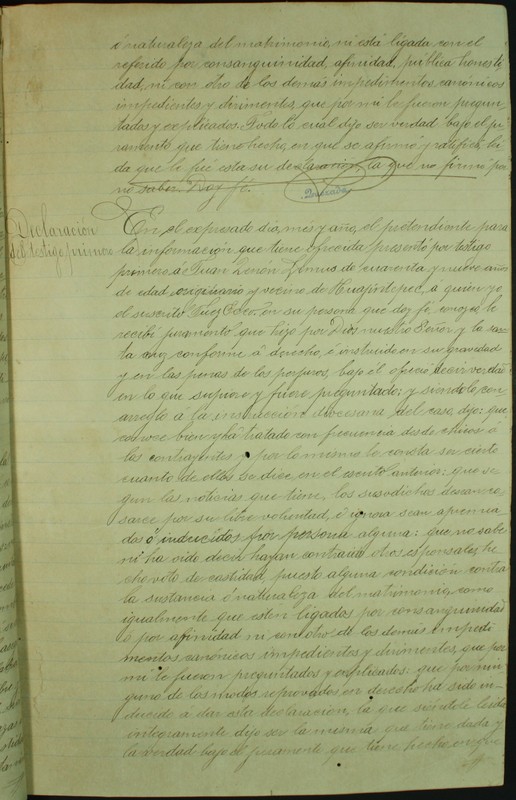 ó naturaleza del matrimonio, ni está ligada con el
referido por consanguinidad, afinidad, pública honesti
dad, ni con otro de los demás impedimentos, canónicos
impedientes y dirimentes, que por mi le fueron pregun
tados y explicados. Todo lo cual dijo ser verdad bajo el ju
ramento que tiene hecho, en que se afirmó y ratificó, leí
da que le fué esta su declaracion, la que no firmó por
no saber. Doy fé.
Declaración
del testigo primero
En el expresado dia, mes y año, el pretendiente para
la información que tiene ofrecida presentó por testigo
primero, a Juan Lemus de cuarenta y nueve años
de edad, originario y vecino de, a quien yo
el suscrito en su persona que doy fé conozco, le
recibí juramento que hizo por Dios nuestro Señor y la san
ta cruz conforme á derecho, é instruido en su gravedad
y en las penas de los perjuros, bajo él ofreció decir verdad
en lo que supiere y fuere preguntado; y siendolo con
arreglo á la instrucción diocesana del caso, dijo: que
conoce bien y há tratado con frecuencia desde chicos á
los contrayentes y por lo mismo le consta ser cierto
cuanto de ellos se dice en el escrito anterior: que se
gun las noticias que tiene, los susodichos desean ca
sarse por su libre voluntad, é ignora sean apremia
dos ó inducidos por persona alguna: que no sabe
ni ha oido decir hayan contraido otros esponsales, he
cho voto de castidad, puesto alguna condición contra
la sustancia ó naturaleza del matrimonio, como
igualmente que estén ligados por consanguinidad
ó por afinidad ni con otro de los demás impedi
mentos canónicos impedientes y dirimentes, que por
mi le fueron preguntados y explicados: que por nin
guno de los modos reprovados en derecho ha sido in
ducido á dar esta declaración, la que siendole leida
integramente dijo ser la misma que tiene dada y
la verdad bajo el juramento que tiene hecho, en que